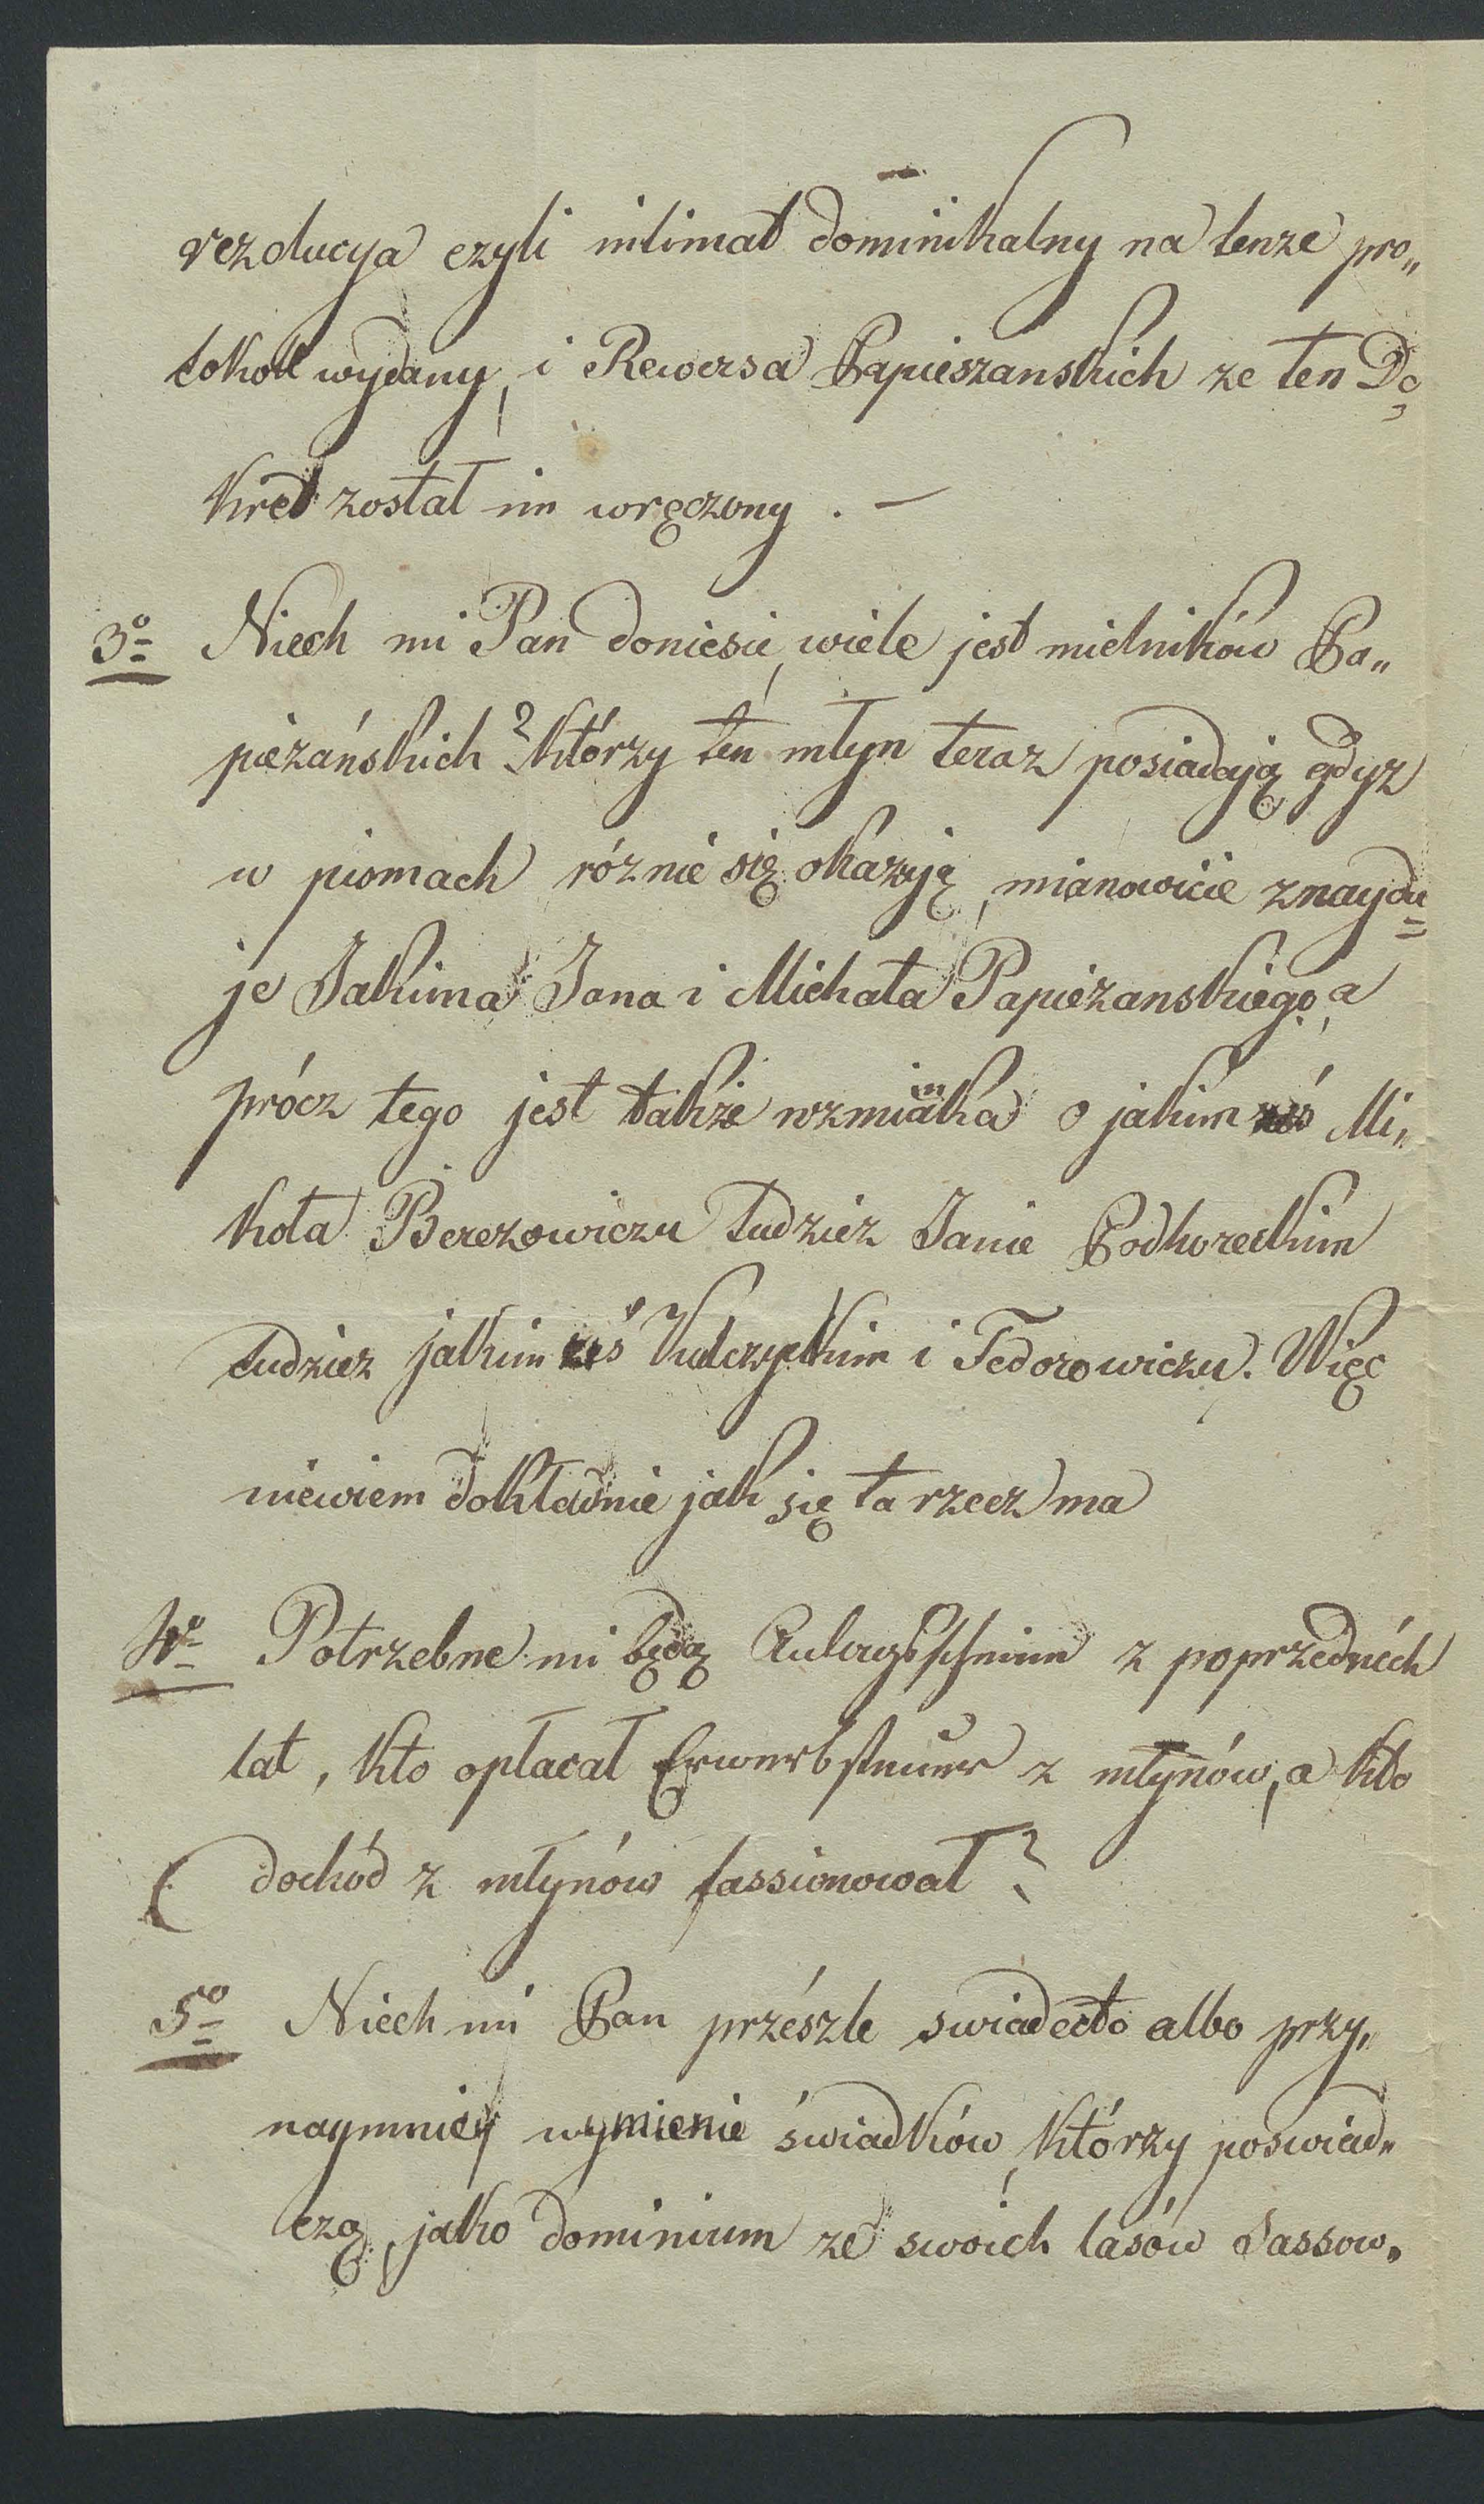 rezolucya czyli intimat dominikalny na tenze pro„
tokoll wydany, i Rewersa Papieszanskich ze ten De„
kret został im wręczony . —
3º Niech mi Pan doniesie, wiele jest mielników Pa„
pieżańskich? którzy ten młyn teraz posiadają gdyz
w pismach róznie się okazuję, mianowicie znaydu=
je Jakima Jana i Michała Papieżanskiego, a
prócz tego jest także wzmianka o jakimześ Mi„
kola Berezowiczu tudzież Janie Podhoreckim
tudziez jakimześ Kulczyckim i Fedorowiczu. Więc
niewiem dokładnie jak się ta rzecz ma
4º Potrzebne mi będą Anlagsscheine z poprzednich
lat, kto opłacał Erwerbsteuer z młynów, a kto
dochód z młynów fassionował?
5º Niech mi Pan przészle swiadectło albo przy„
naymniey wymienie świadków, którzy poswiad„
czą, jako dominium ze swoich lasów Sassow„